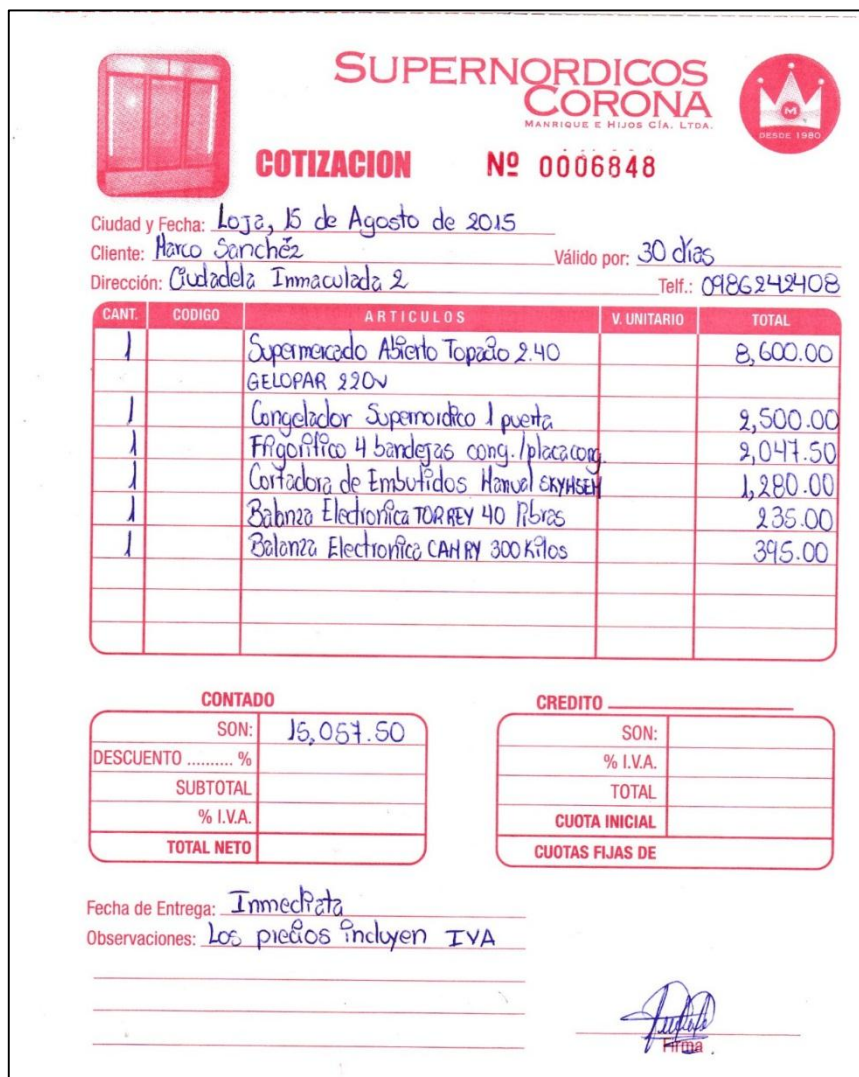 SUPERNORDICOS
CORONA
MANRIQUE E HIJOS CÍA. LTDA.
M
DESDE 1980
COTIZACION Nº 0006848
Ciudad y Fecha: Loja, 15 de Agosto de 2015
Cliente: Marco Sanchéz Válido por: 30 días
Dirección: Ciudadela Inmaculada 2 Telf.: 0986242408
CANT. CODIGO ARTICULOS V. UNITARIO TOTAL
1 Supermercado Abierto Topacio 2.40 8,600.00
GELOPAR 220V
1 Congelador Supernordico 1 puerta 2,500.00
1 Frigorifico 4 bandejas cong./placa cong. 2,047.50
1 Cortadora de Embutidos Manual SKYMSEM 1,280.00
1 Balanza Electronica TORREY 40 libras 235.00
1 Balanza Electronica CAMRY 300 Kilos 395.00
CONTADO
SON: 15,057.50
DESCUENTO .......... %
SUBTOTAL
% I.V.A.
TOTAL NETO
CREDITO
SON:
% I.V.A.
TOTAL
CUOTA INICIAL
CUOTAS FIJAS DE
Fecha de Entrega: Inmediata
Observaciones: Los precios incluyen IVA
Firma